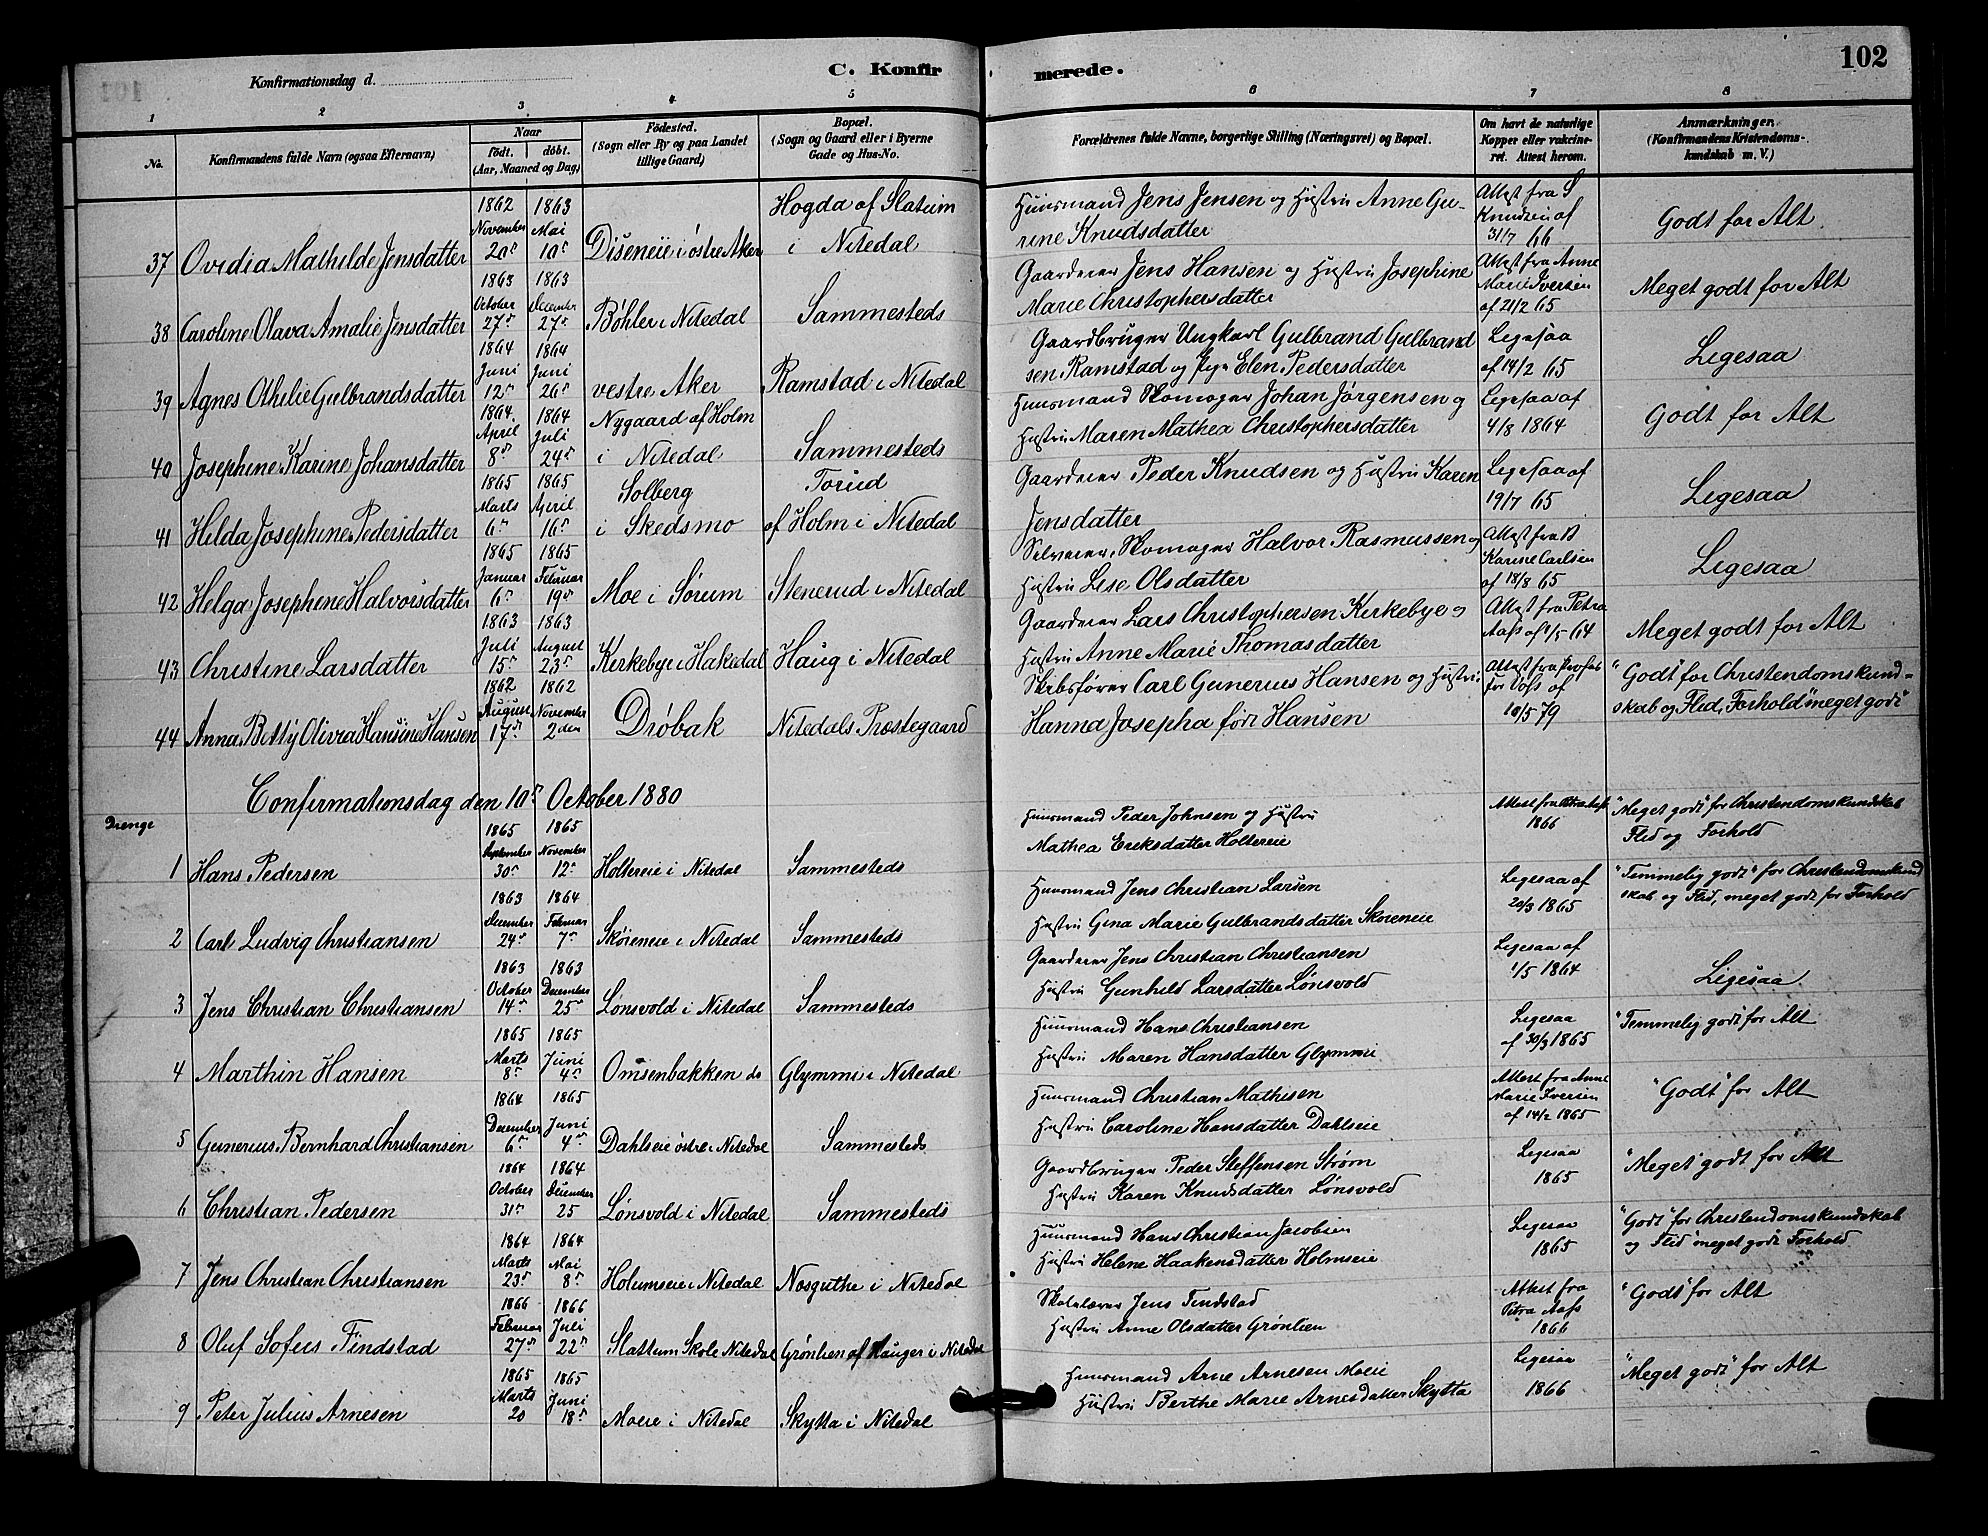 102
Konfirmationsdag d.
C. Konfir merede.
1 2 3 4 5 6 7 8
No.
Konfirmandens fulde Navn (ogsaa Efternavn)
Naar
født. døbt.
(Aar, Maaned og Dag)
Fødested.
(Sogn eller By og paa Landet
tillige Gaard)
Bopæl.
(Sogn og Gaard eller i Byerne
Gade og Hus-No.
Forældrenes fulde Navne, borgerlige Stilling (Næringsvei) og Bopæl.
Om havt de naturlige
Kopper eller vakcine-
ret. Attest herom.
Anmærkninger.
(Konfirmandens Kristendoms-
kundskab m. V.)
37 Ovidia Mathilde Jensdatter
1862 November 20de
1863 Mai 10de
Diseneie i østre Aker
Hogda af Slatum
i Nitedal
Huusmand Jens Jensen og Hustru Anne Gu-
rine Knudsdatter
Attest fra S
Knudsen af
31/7 66
Godt for Alt
38 Caroline Olava Amalie Jensdatter
1863 October 27de
1863 December 27de
Bøhler i Nitedal
Sammesteds
Gaardeier Jens Hansen og Hustru Josephine
Marie Christophersdatter
Attest fra Anne
Marie Iversen
af 21/2 65
Meget godt for Alt
39 Agnes Othilie Gulbrandsdatter
1864 Juni 12te
1864 Juni 26de
vestre Aker
Ramstad i Nitedal
Gaardbruger Ungkarl Gulbrand Gulbrand
sen Ramstad og Pige Elen Pedersdatter
Ligesaa
af 14/2 65
Ligesaa
40 Josephine Karine Johansdatter
1864 April 8de
1864 Juli 24de
Nygaard af Holm
i Nitedal
Sammesteds
Huusmand Skomager Johan Jørgensen og
Hustru Maren Mathea Christophersdatter
Ligesaa af
4/8 1864
Godt for Alt
41 Hilda Josephine Pedersdatter
1865 Marts 6te
1865 April 16de
Solberg
i Skedsmo
Torud
af Holm i Nitedal
Gaardeier Peder Knudsen og Hustru Karen
Jensdatter
Ligesaa af
19/7 65
Ligesaa
42 Helga Josephine Halvorsdatter
1865 Januar 6te
1865 Februar 19de
Moe i Sørum
Stenerud i Nitedal
Selveier, Skomager Halvor Rasmussen og
Hustru Lise Olsdatter
Attest fra B
Karine Carlsen
af 18/8 65
Ligesaa
43 Christine Larsdatter
1863 Juli 15de
1863 August 23de
Kirkebye i Hakedal
Haug i Nitedal
Gaardeier Lars Christophersen Kirkebye og
Hustru Anne Marie Thomasdatter
Attest fra Petra
Aass af 1/5 64
Meget godt for Alt
44 Anna Betty Olivia Hansine Hansen
1862 August 17de
1862 November 2den
Drøbak
Nitedals Præstegaard
Skibsfører Carl Gunerius Hansen og Hustru
Hanna Josepha født Hansen
Attest fra Profes
sor Voss af
10/5 79
"Godt" for Christendomskund-
skab og Flid, Forhold "meget godt"
Confirmationsdag den 10de October 1880
Drenge
1 Hans Pedersen
1865 September 30te
1865 November 12te
Holtereie i Nitedal
Sammesteds
Huusmand Peder Johnsen og Hustru
Mathea Eriksdatter Holtereie
Attest fra Petra Aass
1866
"Meget godt" for Christendomskundskab
Flid og Forhold
2 Carl Ludvig Christiansen
1863 December 24de
1864 Februar 7de
Skøieneie i Nitedal
Sammesteds
Huusmand Jens Christian Larsen
Hustru Gina Marie Gulbrandsdatter Skøieneie
Ligesaa af
20/3 1865
"Temmelig godt" for Christendomskund
skab og Flid, meget godt for Forhold
3 Jens Christian Christiansen
1863 October 14de
1863 December 25de
Lønsvold i Nitedal
Sammesteds
Gaardeier Jens Christian Christiansen
Hustru Gunhild Larsdatter Lønsvold
Ligesaa af
1/5 1864
Ligesaa
4 Marthin Hansen
1865 Marts 8de
1865 Juni 4de
Omsenbakken do
Glymmi i Nitedal
Huusmand Hans Christiansen
Hustru Maren Hansdatter Glymmi
Ligesaa
af 30/3 1865
"Temmelig godt" for Alt
5 Gunerius Bernhard Christiansen
1864 December 6te
1865 Juni 4de
Dahlseie østre i Nitedal
Sammesteds
Huusmand Christian Mathisen
Hustru Caroline Hansdatter Dahlseie
Attest fra Anne
Marie Iversen
af 14/2 1865
"Godt" for Alt
6 Christian Pedersen
1864 October 31te
1864 December 25
Lønsvold i Nitedal
Sammesteds
Gaardbruger Peder Steffensen Strøm
Hustru Karen Knudsdatter Lønsvold
Ligesaa
1865
"Meget godt" for Alt
7 Jens Christian Christiansen
1864 Marts 23de
1864 Mai 8de
Holumseie i Nitedal
Nosguthe i Nitedal
Huusmand Hans Christian Jacobsen
Hustru Helene Haakensdatter Holmseie
Ligesaa
1865
"Godt" for Christendomskundskab
og Flid "meget godt" Forhold
8 Oluf Sofus Findstad
1866 Februar 27de
1866 Juli 22de
Slattum Skole Nitedal
Grønlien af Hauger i Nitedal
Skolelærer Jens Findstad
Hustru Anne Olsdatter Grønlien
Attest fra
Petra Aass
1866
"Godt" for Alt
9 Peter Julius Arnesen
1865 Marts 20
1865 Juni 18de
Moeie i Nitedal
Skytta i Nitedal
Huusmand Arne Arnesen Moeie
Hustru Berthe Marie Arnesdatter Skytta
Ligesaa
1866
"Meget godt" for Alt